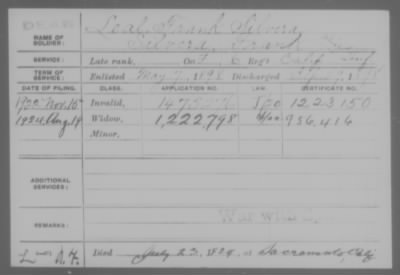 DEAD
NAME OF SOLDIER: Leal, Frank Silvera
Silvera, Frank
SERVICE: Late rank, Co. F, Reg't Calif Inf
TERM OF SERVICE: Enlisted May 7, 1898 Discharged 1898
DATE OF FILING. CLASS. APPLICATION NO. LAW. CERTIFICATE NO.
Nov. 15 Invalid, 1223150
1924 Aug 19 Widow, 1,222,798 956,416
Minor,
ADDITIONAL SERVICES:
REMARKS:
Died July 23, 1924, at Sacramento, Calif